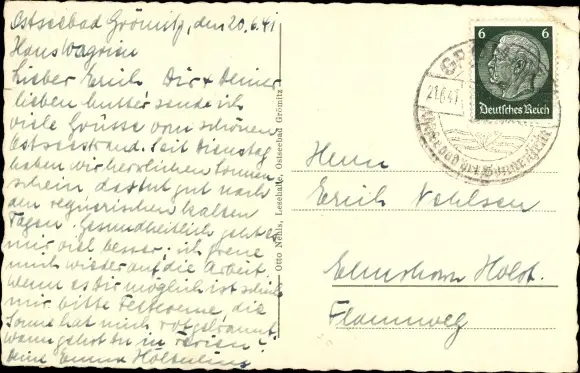 Ostseebad Grömitz, den 20.6.41
Haus Wagrien
Lieber Erich Dir + Deiner
lieben Mutter sende ich
viele Grüsse vom schönen
Ostseestrand. Seit Dienstag
haben wir herrlichen Sonnen
schein, das tut gut nach
den regnerischen kalten
Tagen. Gesundheitlich geht es
mir viel besser, ich freue
mich wieder auf die Arbeit.
Wenn es Dir möglich ist schick
mir bitte Fettcreme, die
Sonne hat mich rotgebrannt
Wann gehst Du in Ferien?
Deine Emma
Otto Nehls, Lesehalle, Ostseebad Grömitz
6 6
Deutsches Reich
21.6.41
Herrn
Erich
Elmshorn Holst.
Flammweg